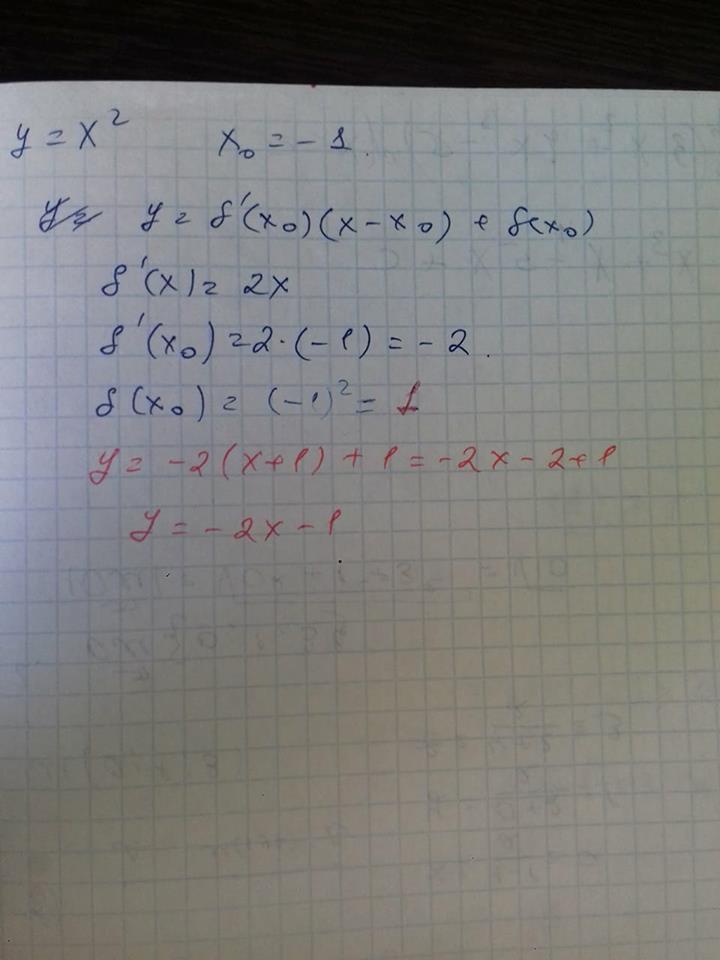 y = x² x₀ = -1.
y = f'(x₀)(x-x₀) + f(x₀)
f'(x) = 2x
f'(x₀) = 2·(-1) = -2.
f(x₀) = (-1)² = 1
y = -2(x+1) + 1 = -2x - 2+1
y = -2x - 1